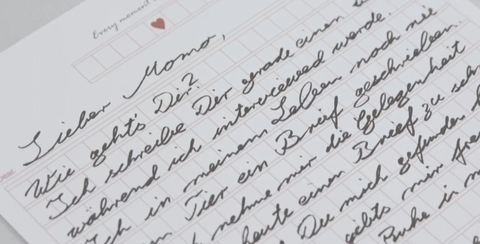 Every moment
Lieber Momo,
Wie geht's Dir?
Ich schreibe Dir gerade einen
während ich interviewed werde.
Ich in meinem Leben noch nie
Tier ein Brief geschrieben.
nehme mir die Gelegenheit
heute einen Brief zu
Du mich gefunden
geht's mir
Ruhe in